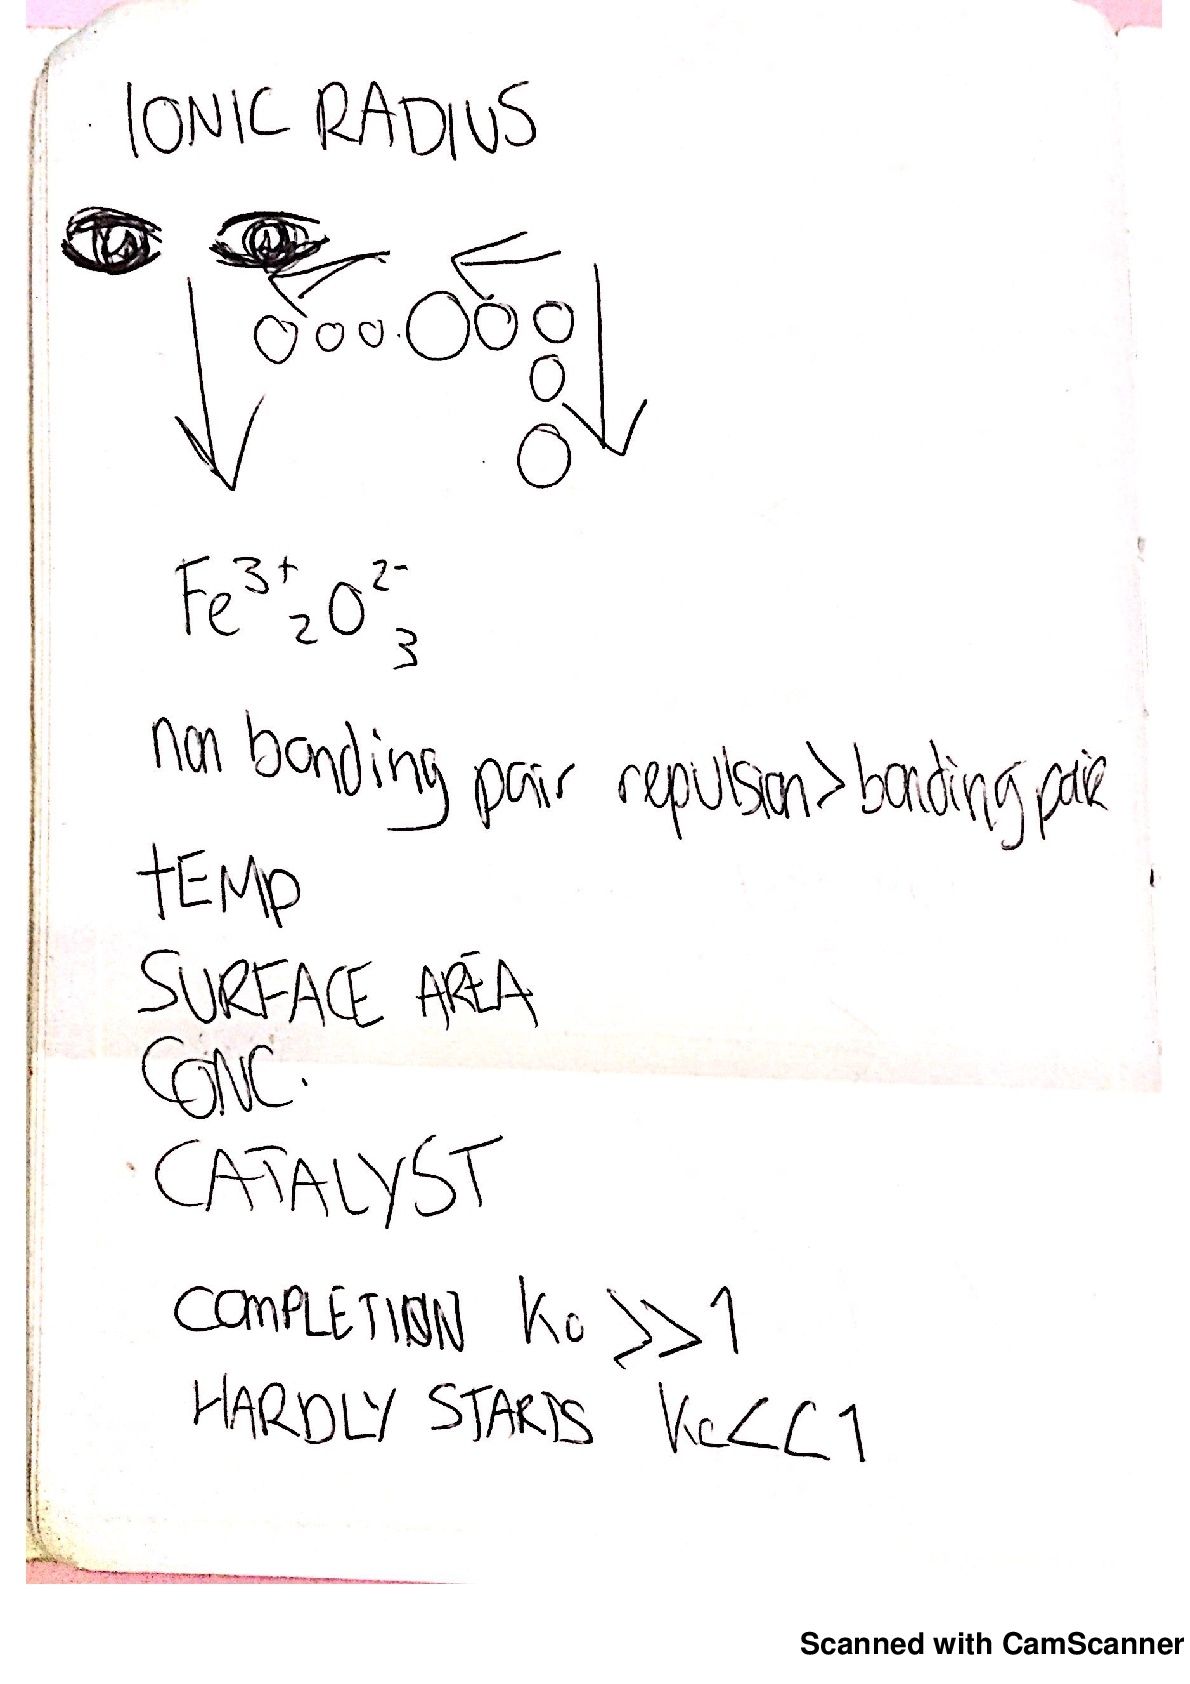 IONIC RADIUS
Fe³⁺₂O²⁻₃
non bonding pair repulsion > bonding pair
tEMP
SURFACE AREA
CONC.
CATALYST
COMPLETION Kc >> 1
HARDLY STARTS Kc << 1
Scanned with CamScanner